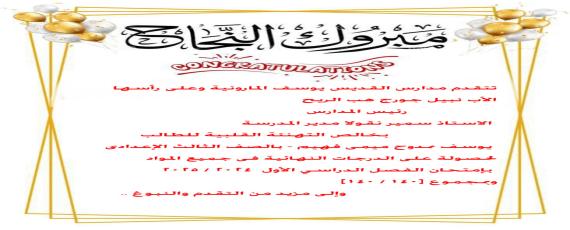 مبروك النجاح
CONGRATULATIONS
تتقدم مدارس القديس يوسف المارونية وعلى رأسها
الأب نبيل جورج هب الريح
رئيس المدارس
الاستاذ سمير نقولا مدير المدرسة
بخالص التهنئة القلبية للطالب
يوسف ممدوح ميمى فهيم - بالصف الثالث الإعدادى
لحصولة على الدرجات النهائية فى جميع المواد
بإمتحان الفصل الدراسي الأول ٢٠٢٤ / ٢٠٢٥
وبمجموع [ ١٤٠ / ١٤٠ ]
وإلى مزيد من التقدم والنبوغ ..